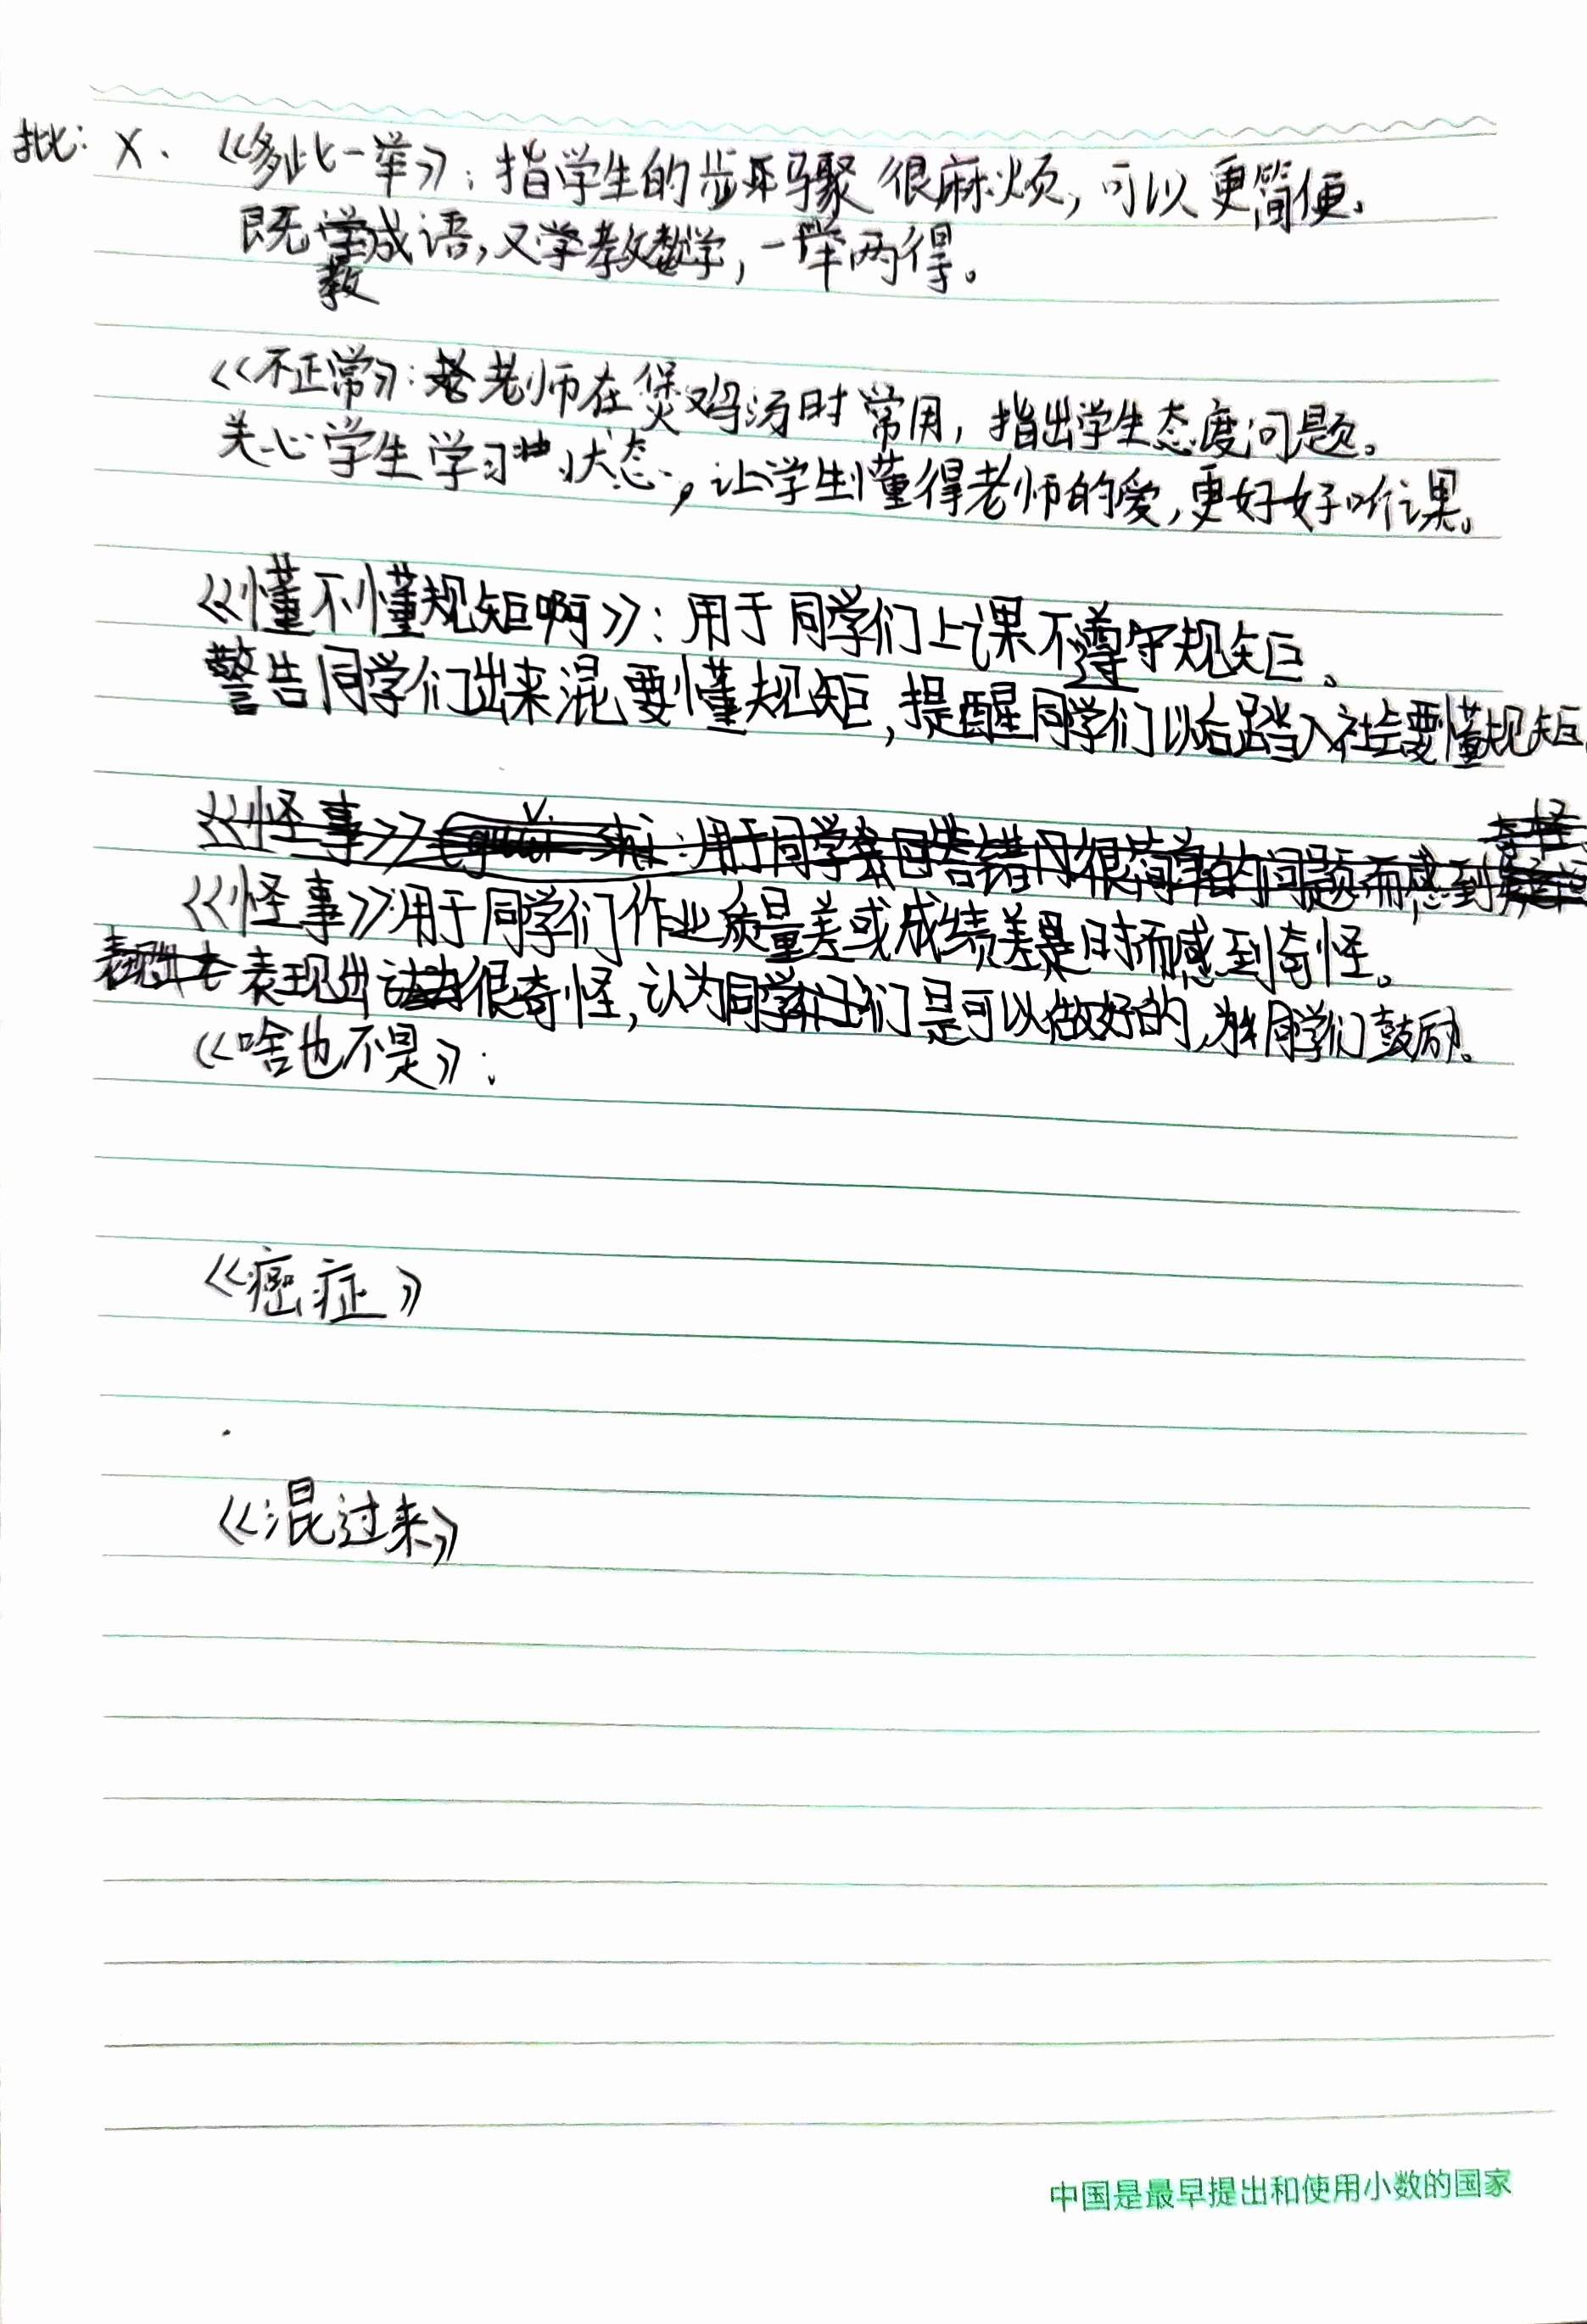 批：X. 《多此一举》：指学生的步骤很麻烦，可以更简便.
既教成语，又学教数学，一举两得。
《不正常》：老师在煲鸡汤时常用，指出学生态度问题。
关心学生学习状态，让学生懂得老师的爱，更好好听课。
《懂不懂规矩啊》：用于同学们上课不遵守规矩。
警告同学们出来混要懂规矩，提醒同学们以后踏入社会要懂规矩.
《怪事》：用于同学回答错很简单的问题而感到
《怪事》：用于同学们作业质量差或成绩差是时而感到奇怪。
表现出很奇怪，认为同学们是可以做好的，为同学们鼓励。
《啥也不是》：
《癌症》
《混过来》
中国是最早提出和使用小数的国家